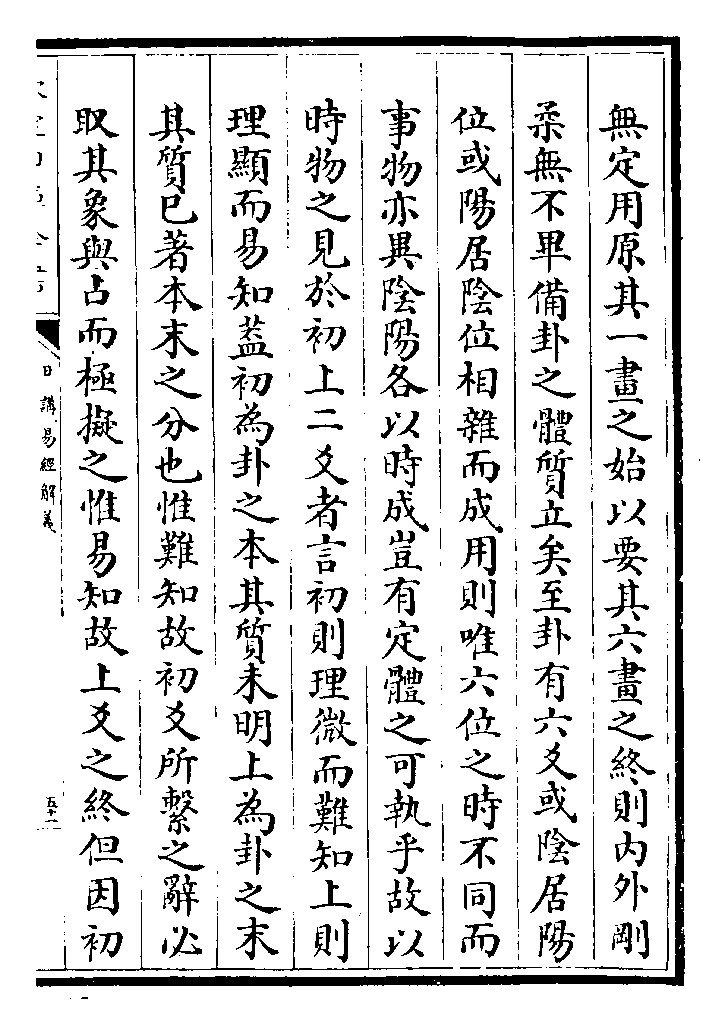 無定用原其一畫之始以要其六畫之終則内外剛
柔無不畢備卦之體質立矣至卦有六爻或陰居陽
位或陽居陰位相雜而成用則唯六位之時不同而
事物亦異陰陽各以時成豈有定體之可執乎故以
時物之見於初上二爻者言初則理微而難知上則
理顯而易知葢初為卦之本其質未明上為卦之末
其質已著本末之分也惟難知故初爻所繫之辭必
取其象與占而極擬之惟易知故上爻之終但因初
日講易經解義
五十一